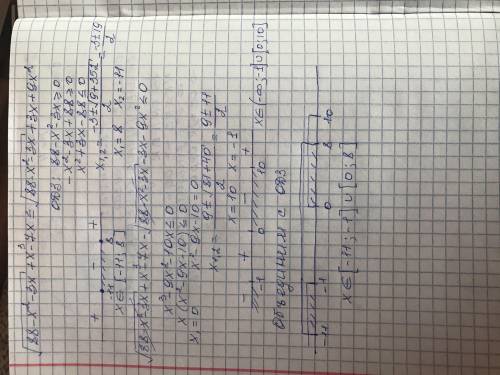 √88-x²-3x + x³-7x ≤ √88-x²-3x + 3x + 9x²
ОДЗ: 88-x²-3x ≥ 0
-x²-3x+88 ≥ 0
x²+3x-88 ≤ 0
x₁,₂ = -3±√9+352 / 2 = -3±19 / 2
x₁ = 8 x₂ = -11
+ - +
-11 8
x ∈ [-11; 8]
√88-x²-3x + x³-7x - √88-x²-3x - 3x - 9x² ≤ 0
x³-9x²-10x ≤ 0
x(x²-9x-10) ≤ 0
x₁ = 0 x²-9x-10 = 0
x₁,₂ = 9±√81+40 / 2 = 9±11 / 2
x = 10 x = -1
- + - +
-1 0 10
x ∈ (-∞; -1] ∪ [0; 10]
Объединим с ОДЗ
-11 -1 0 8 10
x ∈ [-11; -1] ∪ [0; 8]